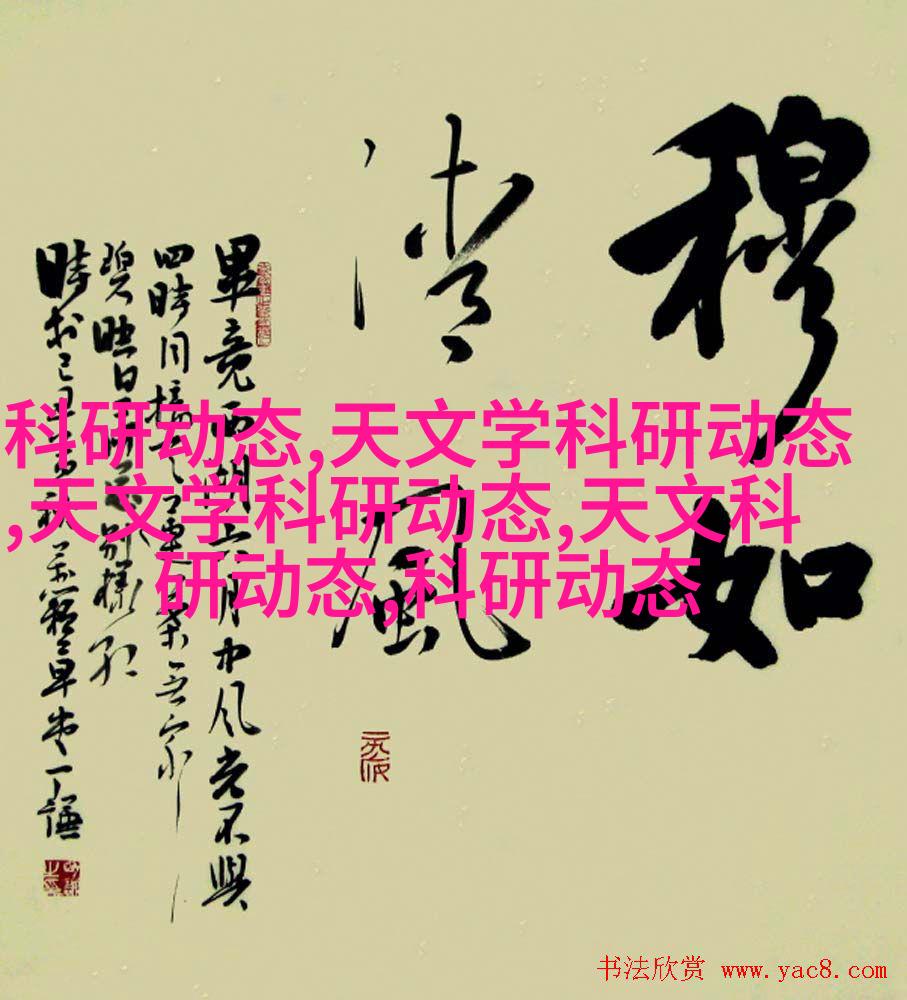 穆如
清風
畢竟西湖六月中風光不與
四時同接天蓮葉無穷
碧映日荷花別樣红
時於己
早 一謙
科研动态,天文学科研动态
,天文学科研动态,天文科
研动态,科研动态
书法欣赏 www.yac8.com